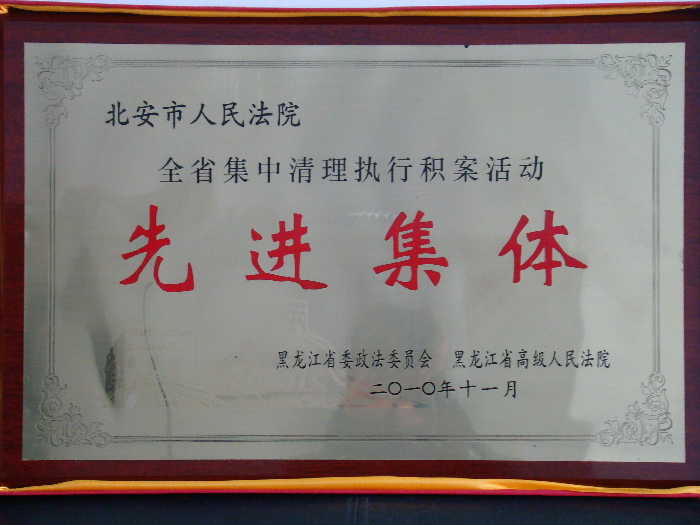 北安市人民法院
全省集中清理执行积案活动
先进集体
黑龙江省委政法委员会 黑龙江省高级人民法院
二〇一〇年十一月